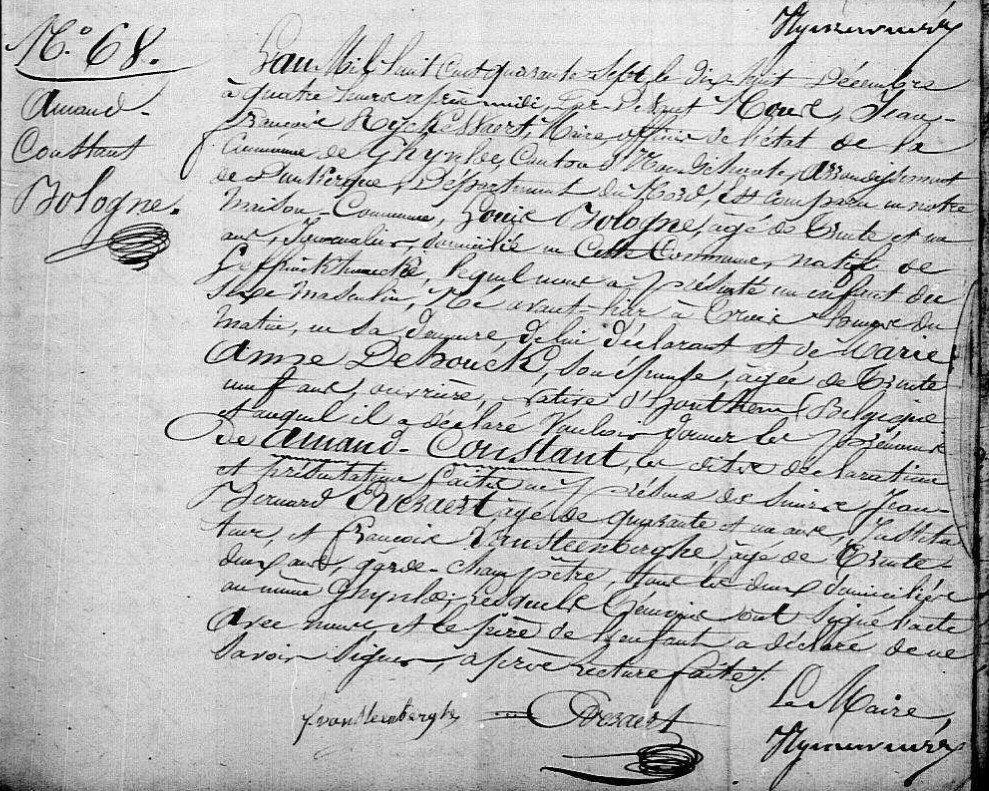 N.º 68.
Amand-
Constant
Bologne.
L'an Mil huit Cent quarante-sept, le dix-huit Décembre
à quatre heures après-midi, Par-Devant Nous, Jean-
François Ryckewaert, Maire, officier de l'état de la
Commune de Ghyvelde, Canton d'Hondschoote, Arrondissement
de Dunkerque, Département du Nord, est comparu en notre
Maison-Commune, Louis Bologne, âgé de trente et un
ans, Journalier, domicilié en Cette Commune, natif de
Leffrinckhoucke, lequel nous a présenté un enfant du
sexe masculin, né avant-hier à trois heures du
matin, en sa demeure, de lui déclarant et de Marie
Anne Debouck, son épouse, âgée de trente
neuf ans, ouvrière, native d'Houthem (Belgique
et auquel il a déclaré Vouloir donner les prénoms
De Amand-Constant, les dites déclaration
et présentation faites en présence de sieurs Jean-
Bernard Everaert, âgé de quarante et un ans, Institu-
teur, et François Vansteenberghe, âgé de trente-
deux ans, garde-champêtre, tous les deux domiciliés
au même Ghyvelde, lesquels témoins ont signé l'acte
Avec nous et le père de l'enfant a déclaré de ne
Savoir Signer, après lecture faite.
Le Maire,
fvansteenberghe Everaert